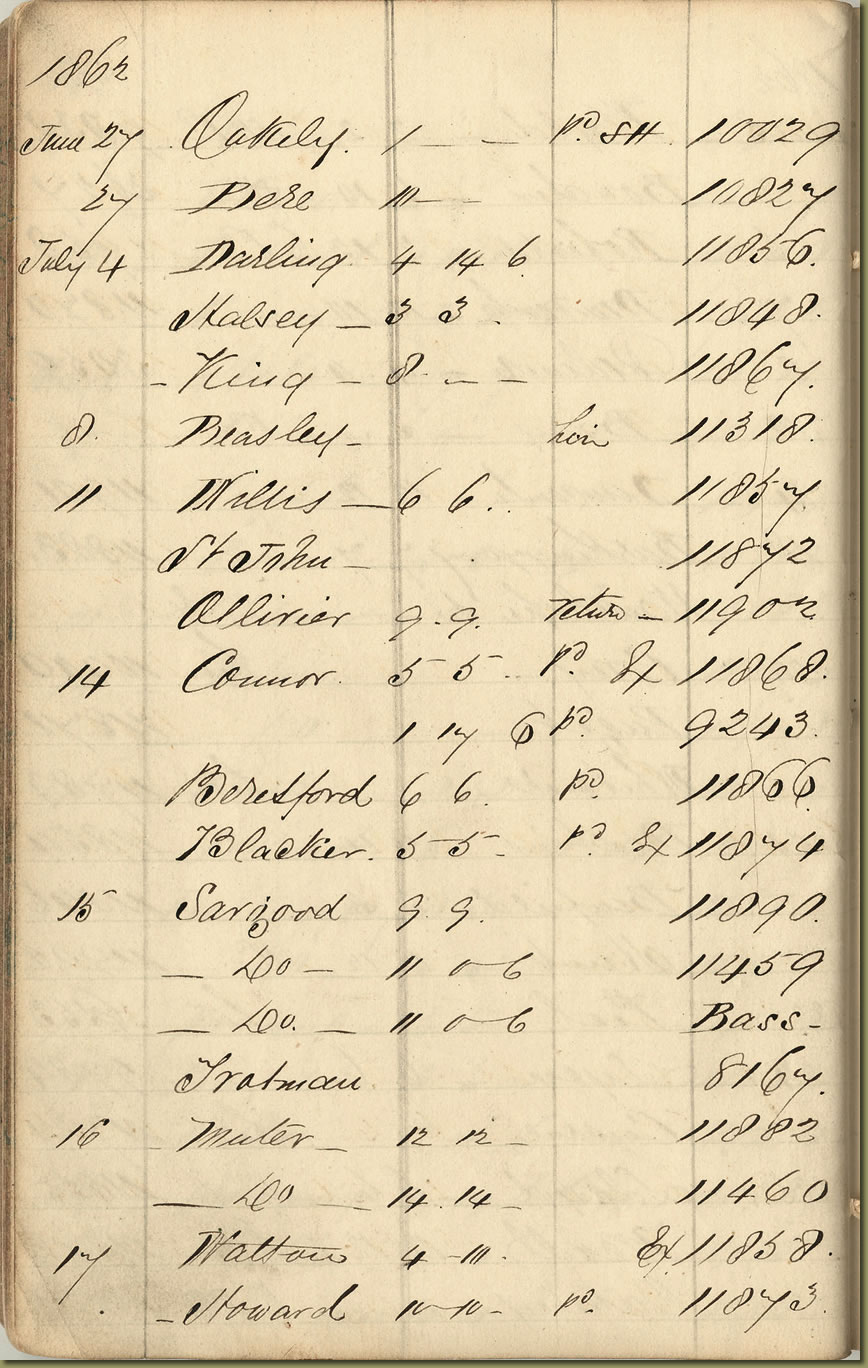 1862
June 27 Oakely. 1 — — pd. SH 10029
27 Dere 10 — — 10827
July 4 Darling 4 14 6 11856.
Halsey — 3 3 . 11848.
- King - 8 . — — 11867.
8. Beasley - 11318.
11 Willis — 6 6 . . 11857.
St John — 11872
Ollivier 9 . 9. return — 11902
14 Connor. 5 5 . pd. Ex 11868.
1 17 6 pd. 9243.
Beresford 6 6 . pd. 11866.
Blacker. 5 5 - pd. Ex 11874
15 Sargood 9 9 . 11890.
— Do — 11 0 6 11459
— Do. — 11 0 6 Bass -
Trotman 8167.
16 Muter — 12 12 — 11882
— Do — 14 . 14 - 11460
17 Walton 4 - 10 . Ex 11858.
- Howard 10 - 10 - pd. 11873.